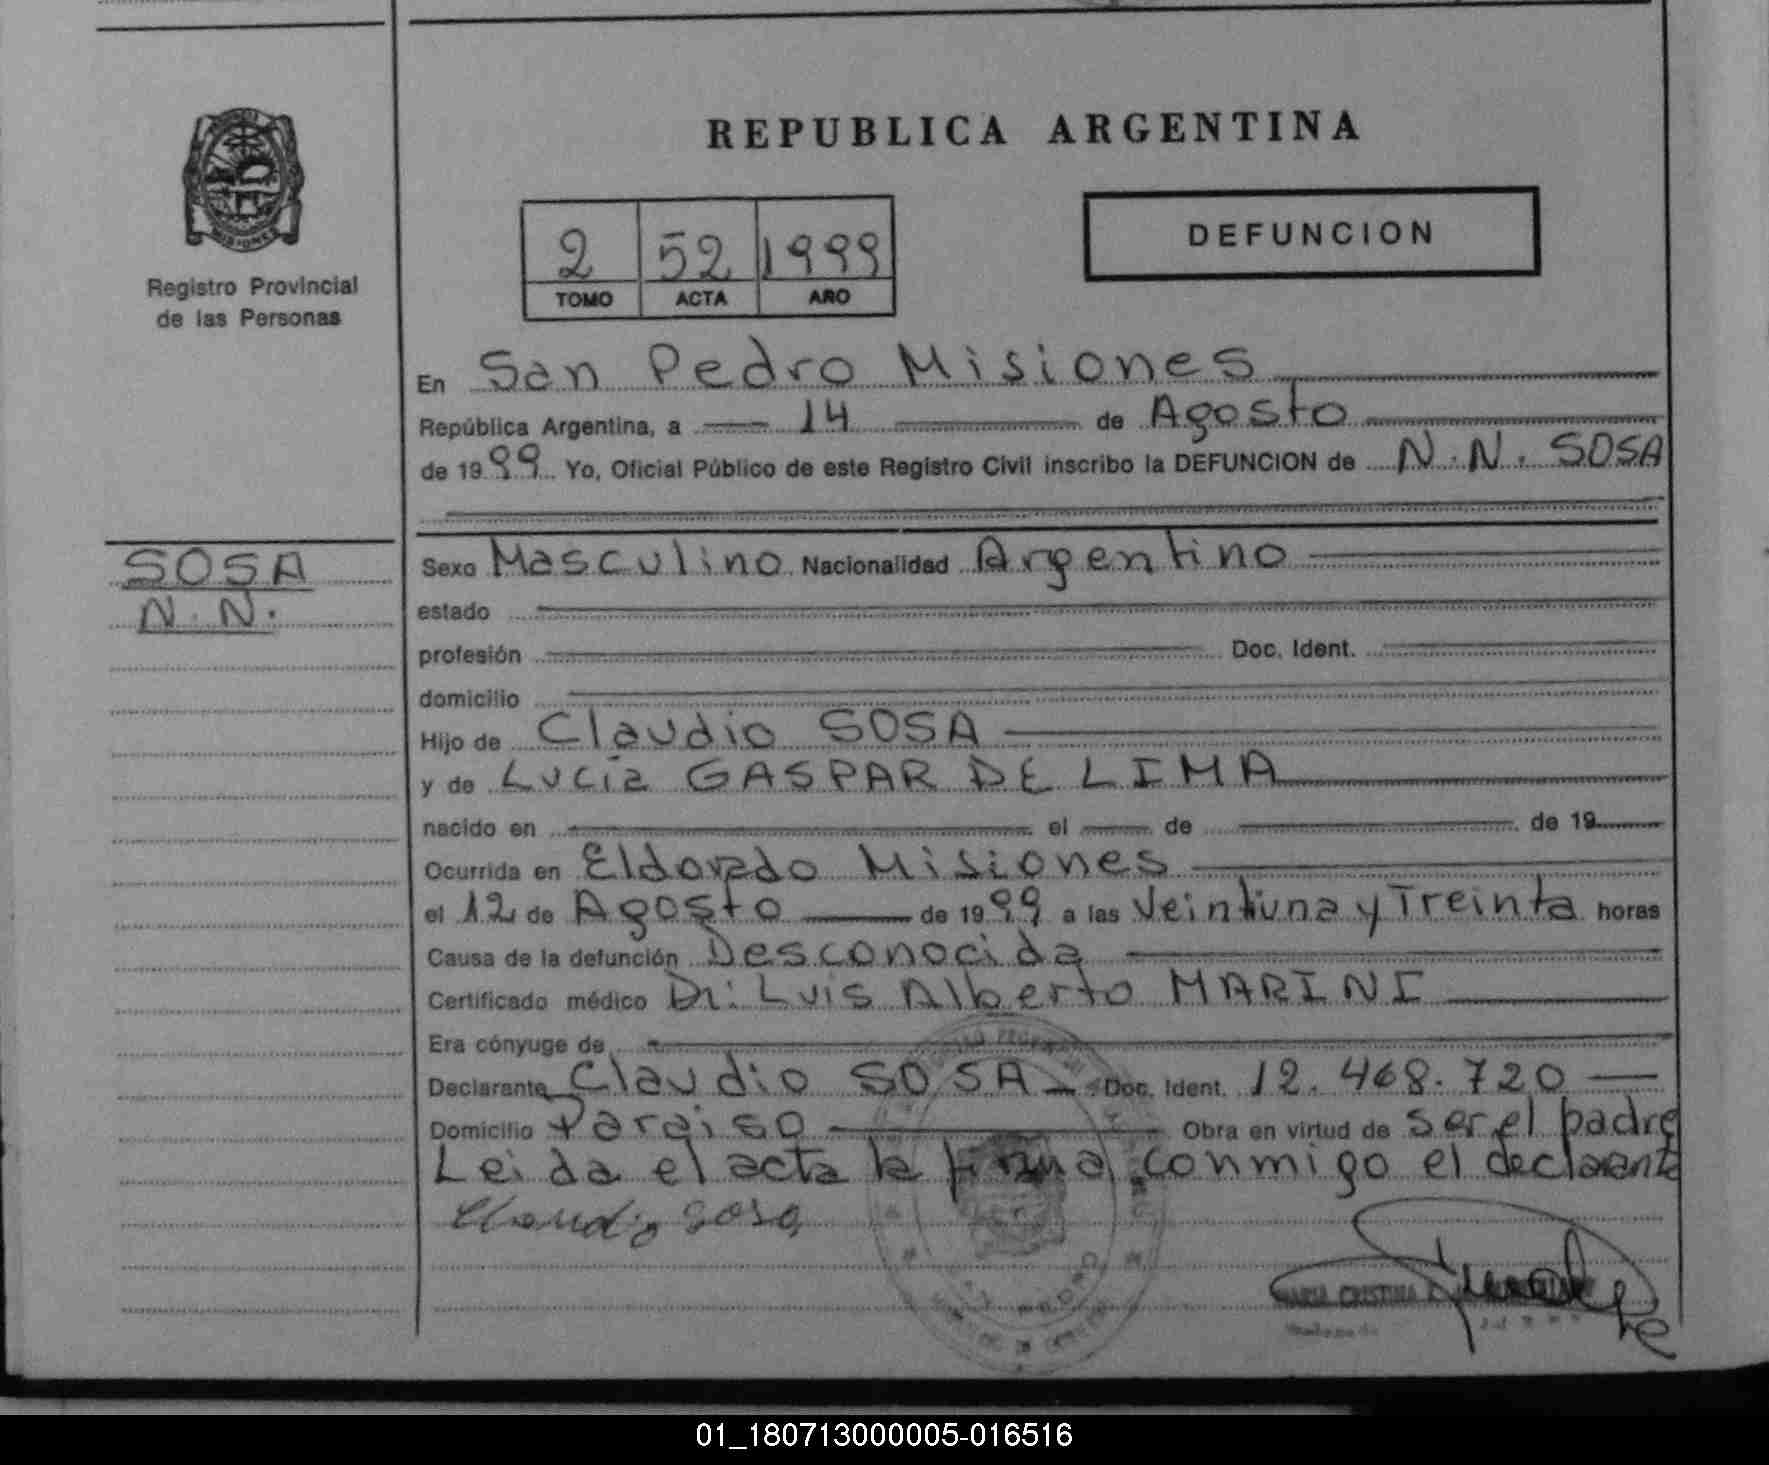 REPUBLICA ARGENTINA
MISIONES
Registro Provincial
de las Personas
2 52 1999
TOMO ACTA AÑO
DEFUNCION
En San Pedro Misiones
República Argentina, a 14 de Agosto
de 1999 Yo, Oficial Público de este Registro Civil inscribo la DEFUNCION de N.N. SOSA
SOSA
N.N.
Sexo Masculino Nacionalidad Argentino
estado
profesión Doc. Ident.
domicilio
Hijo de Claudio SOSA
y de Lucía GASPAR DE LIMA
nacido en el de de 19
Ocurrida en Eldorado Misiones
el 12 de Agosto de 1999 a las Veintiuna y Treinta horas
Causa de la defunción Desconocida
Certificado médico Dr. Luis Alberto MARINI
Era cónyuge de
Declarante Claudio SOSA Doc. Ident. 12.468.720
Domicilio Paraiso Obra en virtud de ser el padre
Leida el acta la firma conmigo el declarante
Claudio Sosa
MARIA CRISTINA
01_180713000005-016516